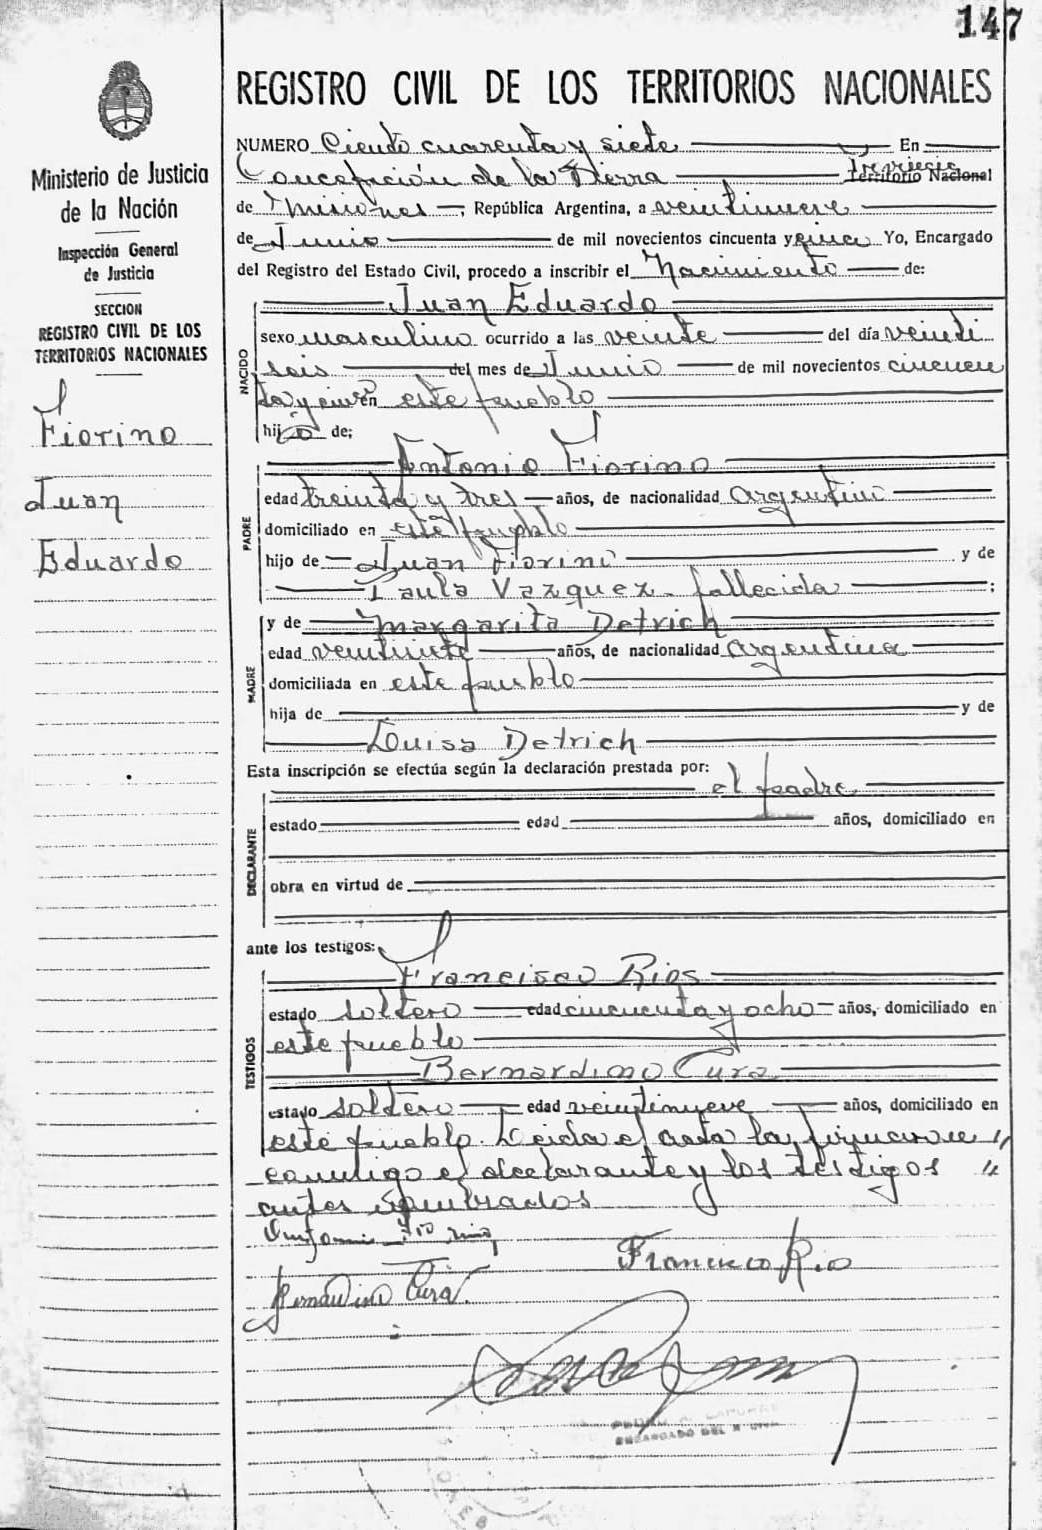 147
Ministerio de Justicia
de la Nación
Inspección General
de Justicia
SECCION
REGISTRO CIVIL DE LOS
TERRITORIOS NACIONALES
Fiorino
Juan
Eduardo
REGISTRO CIVIL DE LOS TERRITORIOS NACIONALES
NUMERO Ciento cuarenta y siete En
Concepción de la Sierra Territorio Nacional
de Misiones, República Argentina, a veintinueve
de Junio de mil novecientos cincuenta y cinco Yo, Encargado
del Registro del Estado Civil, procedo a inscribir el Nacimiento de:
NACIDO
Juan Eduardo
sexo masculino ocurrido a las veinte del día veinti
seis del mes de Junio de mil novecientos cincuen
ta y cinco en este pueblo
hijo de;
PADRE
Antonio Fiorino
edad treinta y tres años, de nacionalidad argentino
domiciliado en este pueblo
hijo de Juan Fiorino y de
Paula Vazquez fallecida ;
MADRE
y de Margarita Detrich
edad años, de nacionalidad Argentina
domiciliada en este pueblo
hija de y de
Luisa Detrich
Esta inscripción se efectúa según la declaración prestada por:
el padre
DECLARANTE
estado edad años, domiciliado en
obra en virtud de
ante los testigos:
TESTIGOS
Francisco Rios
estado soltero edad cincuenta y ocho años, domiciliado en
este pueblo
Bernardino Cura
estado soltero edad veintinueve años, domiciliado en
este pueblo. Leida el acta la firmaron
conmigo el declarante y los testigos "
antes nombrados
Francisco Rio
Bernardino Cura
ENCARGADO DEL R CIVIL